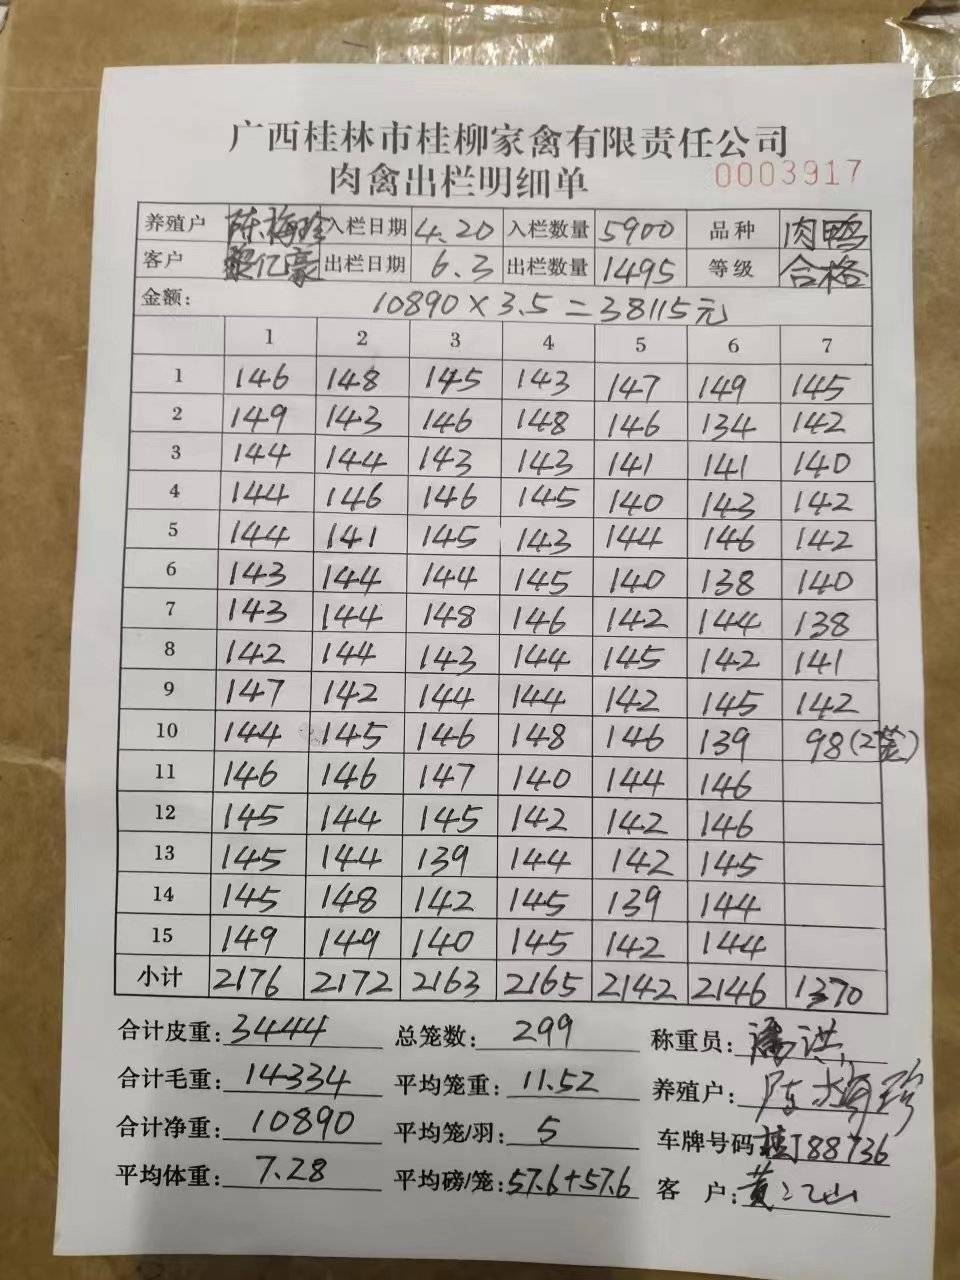 广西桂林市桂柳家禽有限责任公司
肉禽出栏明细单 0003917
养殖户 陈梅珍 入栏日期 4.20 入栏数量 5900 品种 肉鸭
客户 黎亿豪 出栏日期 6.3 出栏数量 1495 等级 合格
金额: 10890×3.5=38115元
1 2 3 4 5 6 7
1 146 148 145 143 147 149 145
2 149 143 146 148 146 134 142
3 144 144 143 143 141 141 140
4 144 146 146 145 140 143 142
5 144 141 145 143 144 146 142
6 143 144 144 145 140 138 140
7 143 144 148 146 142 144 138
8 142 144 143 144 145 142 141
9 147 142 144 144 142 145 142
10 144 145 146 148 146 139 98(2笼)
11 146 146 147 140 144 146
12 145 144 145 142 142 146
13 145 144 139 144 142 145
14 145 148 142 145 139 144
15 149 149 140 145 142 144
小计 2176 2172 2163 2165 2142 2146 1370
合计皮重: 3444 总笼数: 299 称重员: 潘洪
合计毛重: 14334 平均笼重: 11.52 养殖户: 陈梅珍
合计净重: 10890 平均笼/羽: 5 车牌号码 桂J88736
平均体重: 7.28 平均磅/笼: 57.6+57.6 客户: 黄江山